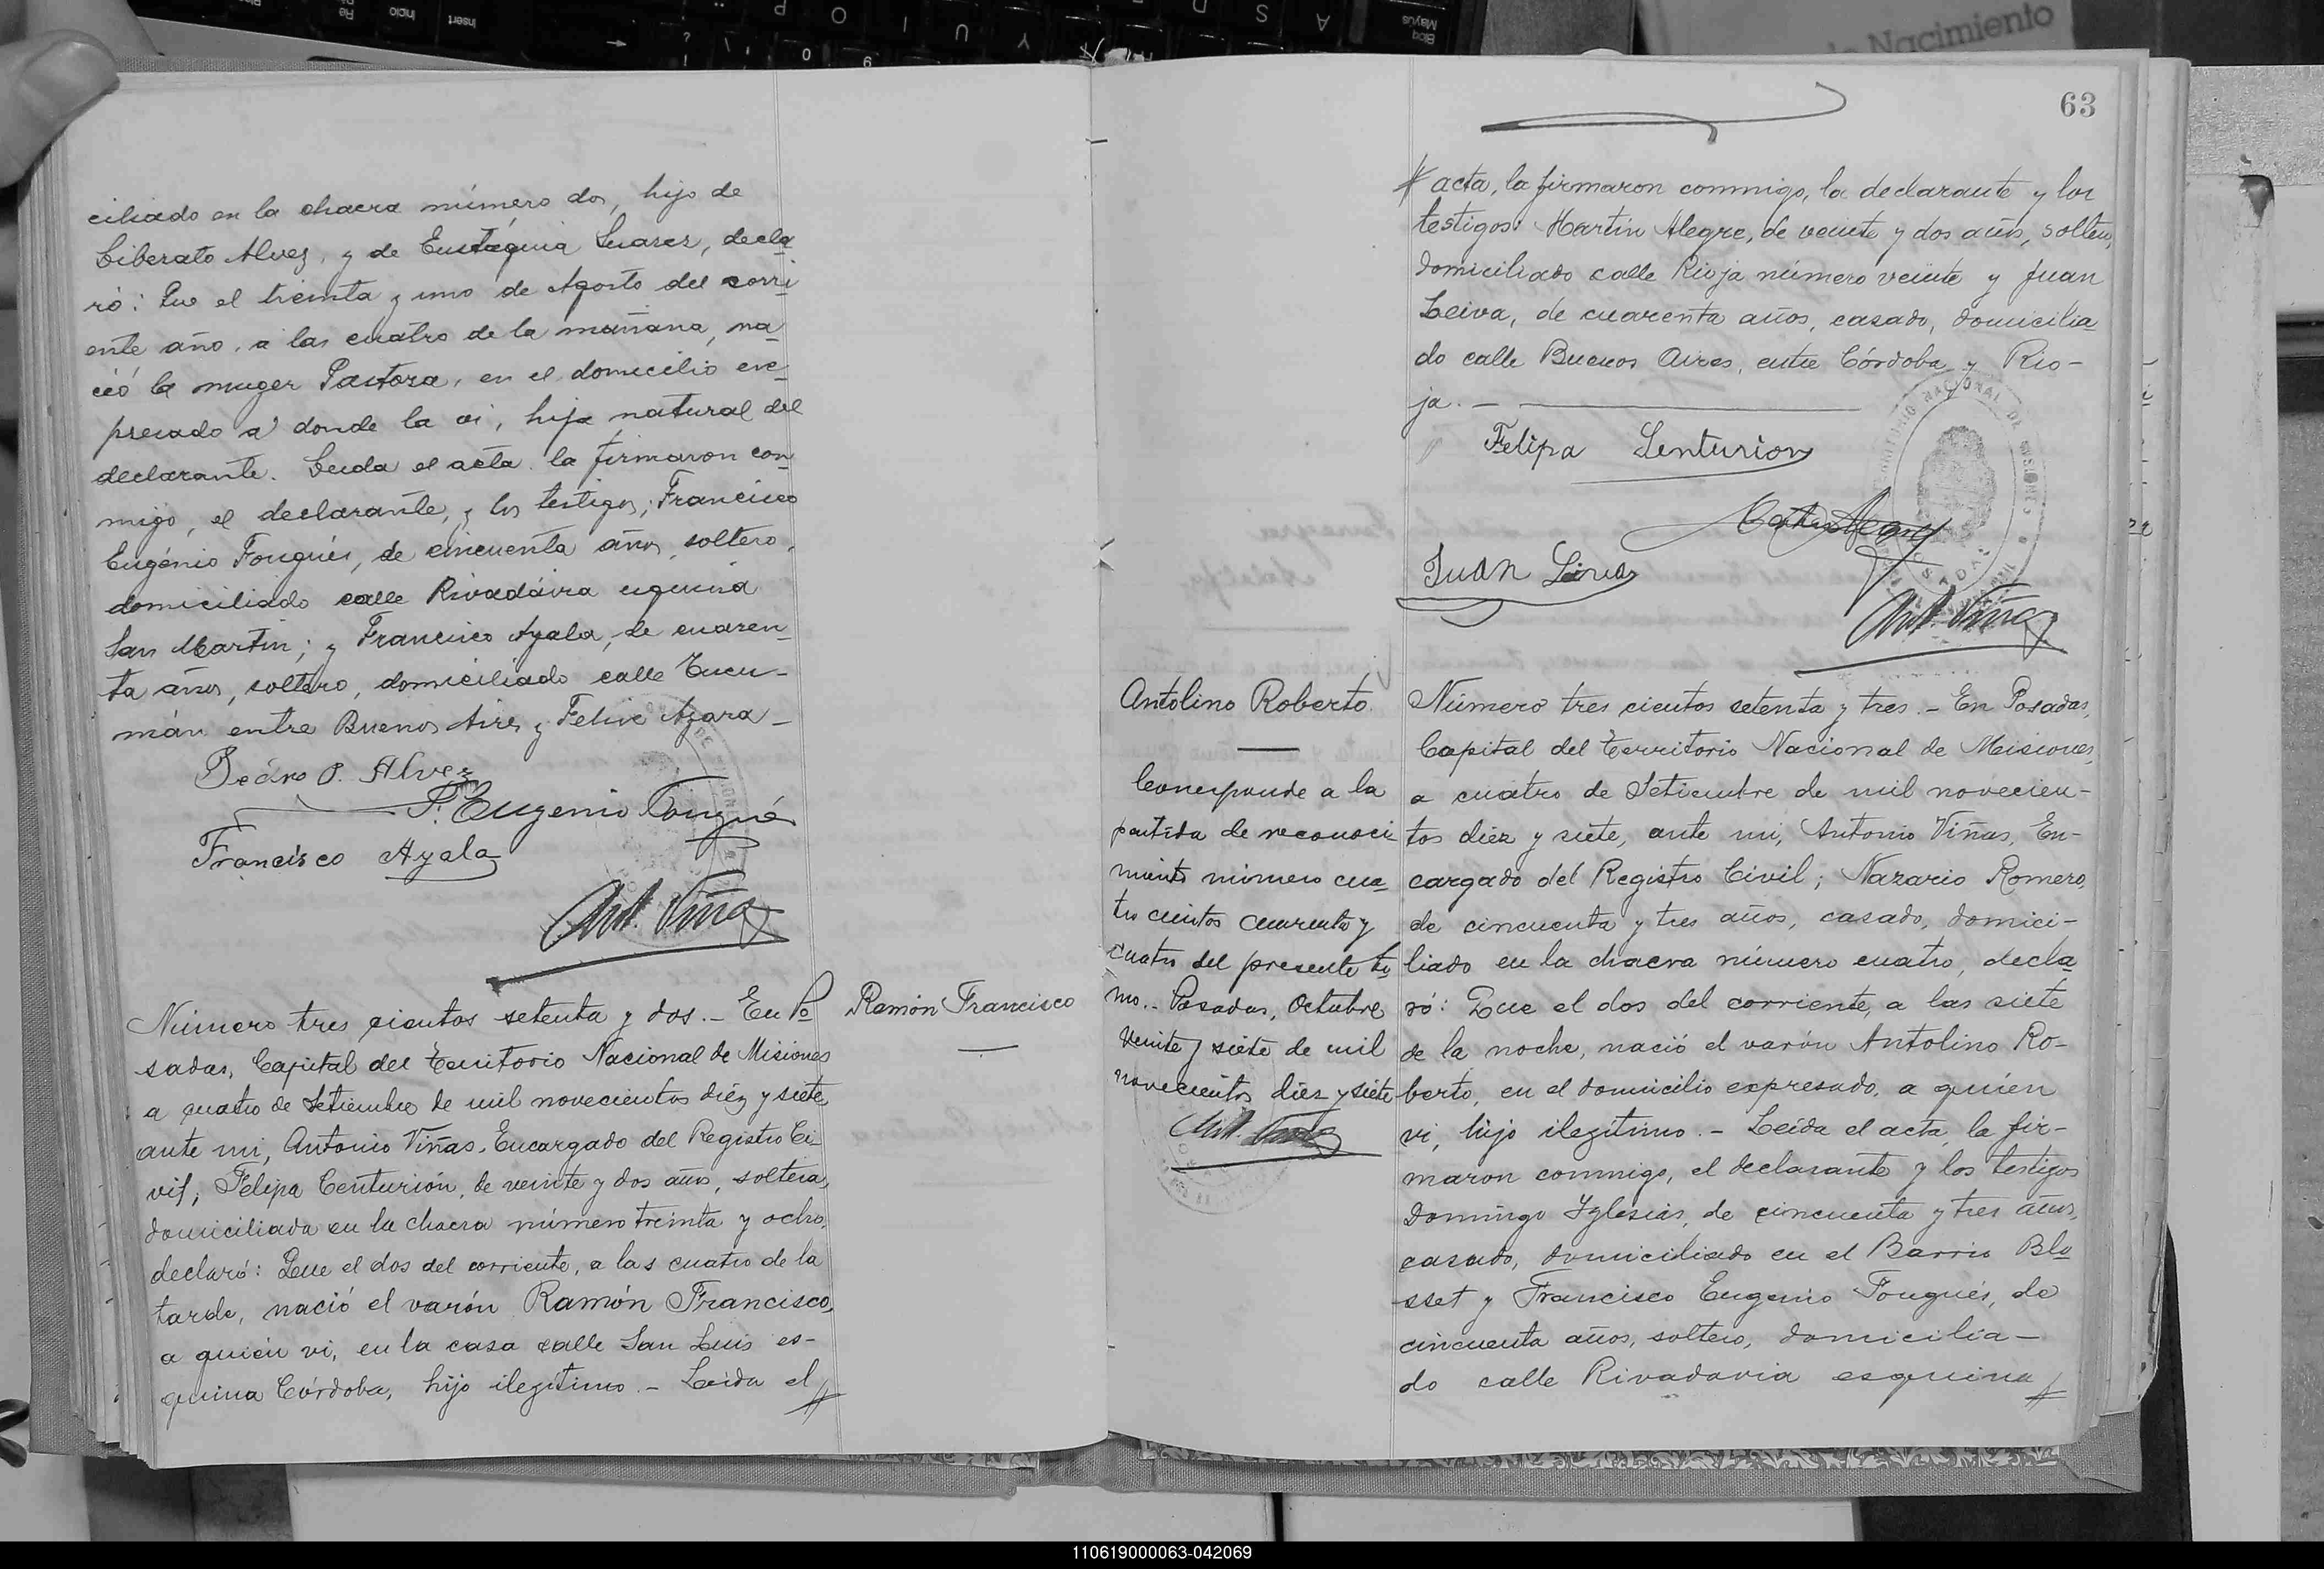 ciliado en la chacra número dos, hijo de
Liberato Alvez, y de Eustaquia Suarez, decla
ró: Que el treinta y uno de Agosto del corri
ente año, a las cuatro de la mañana, na
ció la muger Pastora, en el domicilio ex
presado a donde la vi, hija natural del
declarante. Leida el acta la firmaron con
migo, el declarante, y los testigos; Francisco
Eugénio Fougués, de cincuenta años, soltero,
domiciliado calle Rivadávia esquina
San Martin; y Francisco Ayala, de cuaren
ta años, soltero, domiciliado calle Tucu-
mán entre Buenos Aires y Felix Azara-
Pedro P. Alvez
F. Eugenio Fougués
Francisco Ayala
Ant. Viñas
Número tres cientos setenta y dos.- En Po
sadas, Capital del Territorio Nacional de Misiones
a cuatro de Setiembre de mil novecientos diéz y siete
ante mi, Antonio Viñas, Encargado del Registro Ci
vil; Felipa Centurión, de veinte y dos años, soltera,
domiciliada en la chacra número treinta y ocho,
declaró: Que el dos del corriente, a las cuatro de la
tarde, nació el varón Ramón Francisco,
a quién vi, en la casa calle San Luis es-
quina Córdoba, hijo ilegítimo.- Leída el //
Ramón Francisco
63
// acta, la firmaron conmigo, la declarante y los
testigos: Martín Alegre, de veinte y dos años, soltero,
domiciliado calle Rioja número veinte y Juan
Leiva, de cuarenta años, casado, domicilia
do calle Buenos Aires, entre Córdoba y Rio-
ja.-
Felipa Senturion
Juan Leiva
Ant. Viñas
Antolino Roberto.
Corresponde a la
partida de reconoci
miento número cua
tro cientos cuarenta y
cuatro del presente to
mo.- Posadas, Octubre
veinte y siete de mil
novecientos diez y siete
Ant. Viñas
Número tres cientos setenta y tres.- En Posadas,
Capital del Territorio Nacional de Misiones,
a cuatro de Setiembre de mil novecien-
tos diéz y siete, ante mi, Antonio Viñas, En-
cargado del Registro Civil; Nazario Romero,
de cincuenta y tres años, casado, domici-
liado en la chacra número cuatro, decla
ró: Que el dos del corriente, a las siete
de la noche, nació el varón Antolino Ro-
berto, en el domicilio expresado, a quién
vi, hijo ilegítimo.- Leída el acta, la fir-
maron conmigo, el declarante y los testigos
Domingo Yglesias, de cincuenta y tres años,
casado, domiciliado en el Barrio Blo
sset y Francisco Eugenio Fougués, de
cincuenta años, soltero, domicilia-
do calle Rivadavia esquina //
110619000063-042069